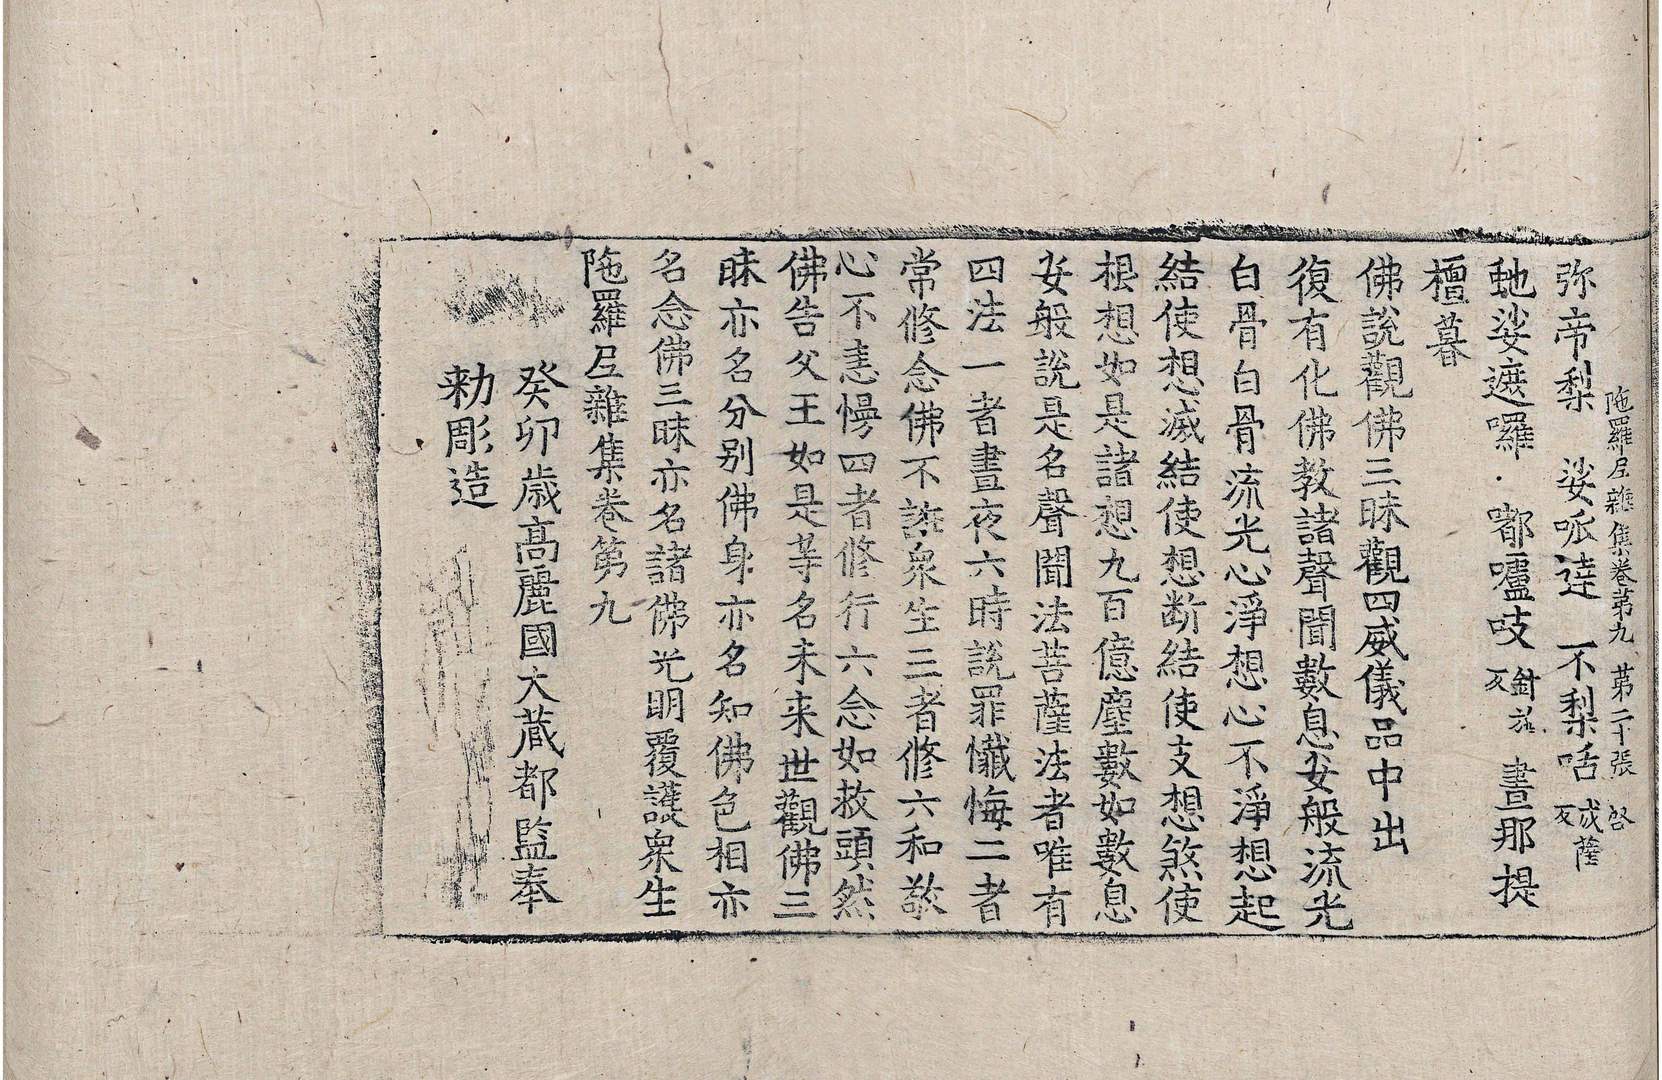 陁羅尼雜集卷苐九 苐二十張 啓
弥帝梨 娑呧逹 一不梨呫 戍薩反
虵娑遮囉 嘟嚧吱 針 反 晝那提
檀暮
佛說觀佛三昧觀四威儀品中出
復有化佛教諸聲聞數息安般流光
白骨白骨流光心淨想心不淨想起
結使想滅結使想断結使支想煞使
根想如是諸想九百億塵數如數息
安般說是名聲聞法菩薩法者唯有
四法一者晝夜六時說罪懺悔二者
常修念佛不誑衆生三者修六和敬
心不恚慢四者修行六念如救頭然
佛告父王如是等名未来世觀佛三
昧亦名分别佛身亦名知佛色相亦
名念佛三昧亦名諸佛光明覆護衆生
陁羅尼雜集卷第九
癸卯歲髙麗國大藏都監奉
勑彫造